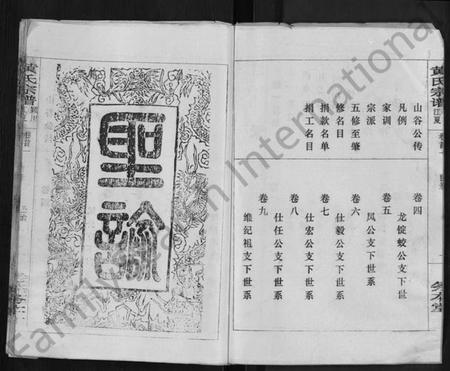 黄氏宗谱
江夏
山谷公传
凡例
家训
宗派
五修至肇
修名目
捐款名单
捐工名目
卷四
龙锭蛟公支下世
卷五
凤公支下世系
卷六
仕毅公支下世系
卷七
仕宏公支下世系
卷八
仕任公支下世系
卷九
维纪祖支下世系
聖諭
黄氏宗谱
卷首
FamilySearch International